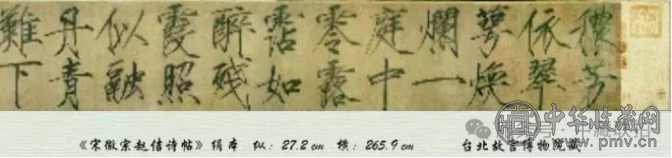 穠芳
依翠
萼煥
爛一
庭中
零露
霑如
醉殘
霞照
似融
丹青
難下
《宋徽宗赵佶诗帖》 绢本 纵:27.2cm 横:265.9cm 台北故宫博物院藏
中华收藏网